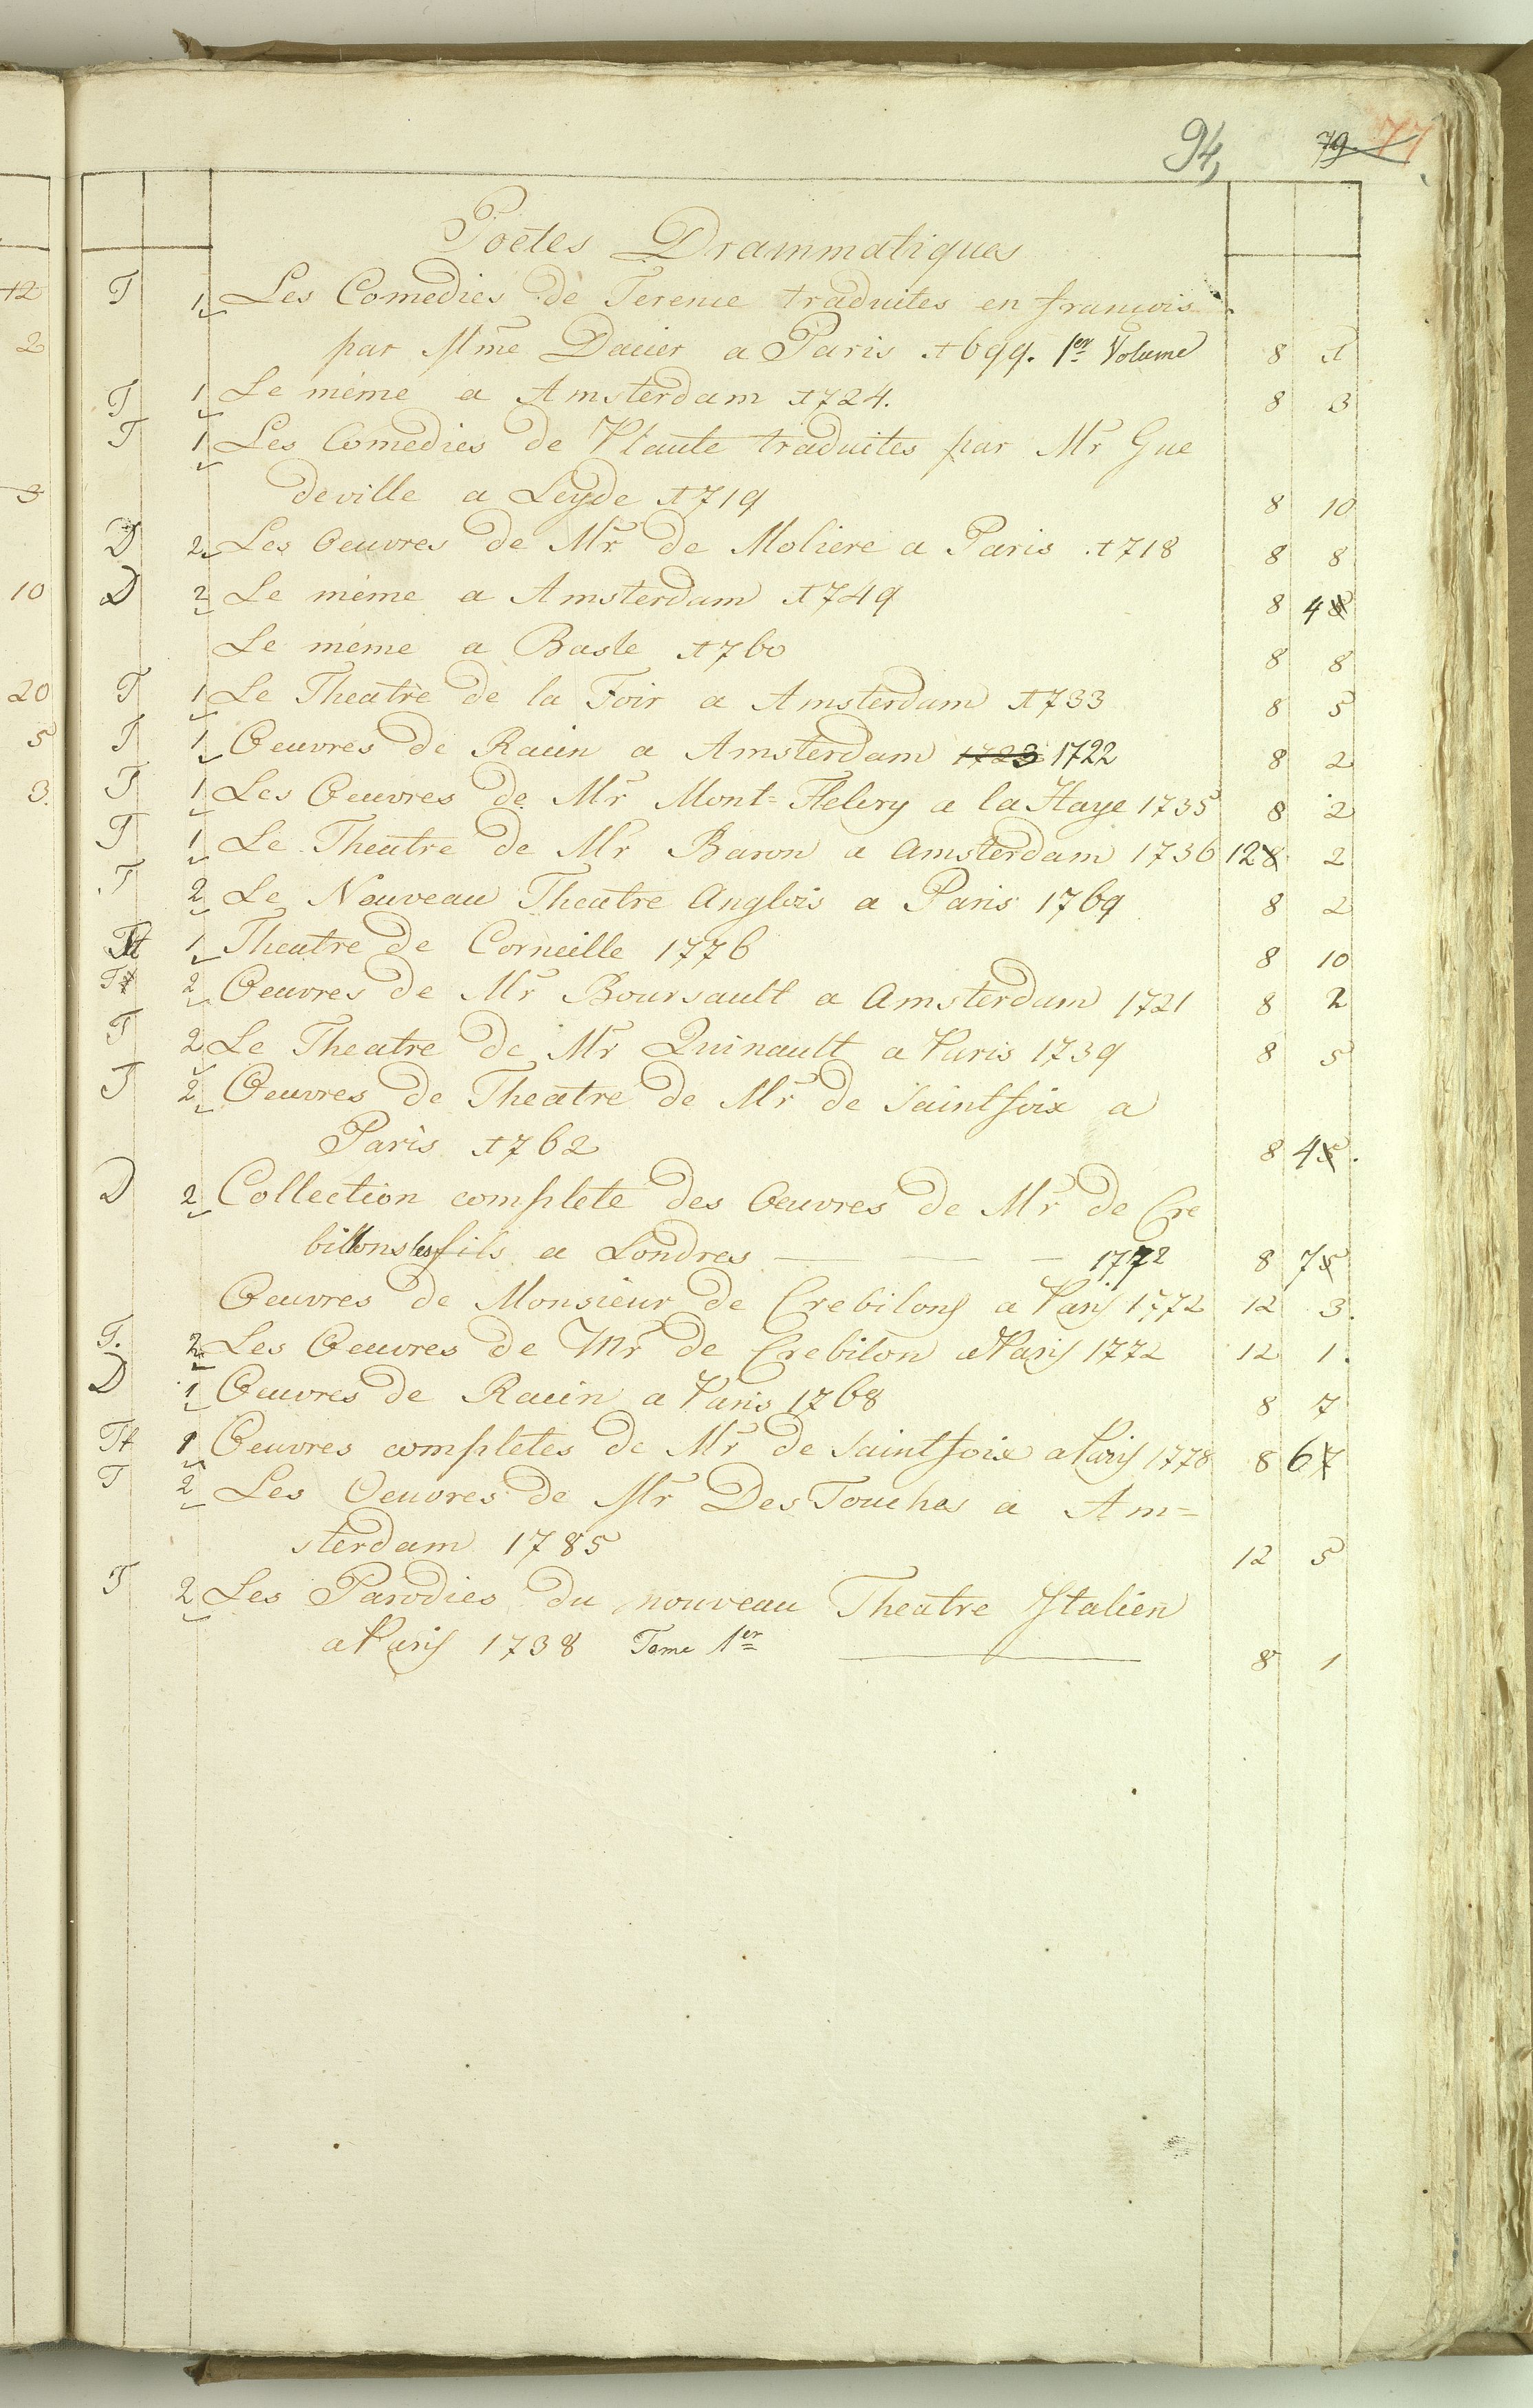 94, 79. 77
Poëtes Drammatiques
T 1 Les Comedies de Terence traduites en francois
par Mme Dacier a Paris 1699. 1er Volume 8 1
T 1 Le même a Amsterdam 1724. 8 3
T 1 Les Comedies de Plaute traduites par Mr Gue
deville a Leyde 1719 8 10
D 2 Les Oeuvres de Mr de Moliere a Paris 1718 8 8
D 2 Le même a Amsterdam 1749 8 4 8
Le même a Basle 1760 8 8
T 1 Le Theatre de la Foir a Amsterdam 1733 8 5
T 1 Oeuvres de Racin a Amsterdam 1723 1722 8 2
T 1 Les Oeuvres de Mr Mont=Flelery a la Haye 1735 8 2
T 1 Le Theatre de Mr Baron a Amsterdam 1736 12 8 2
T 2 Le Nouveau Theatre Anglois a Paris 1769 8 2
1 Theatre de Corneille 1776 8 10
T 2 Oeuvres de Mr Boursault a Amsterdam 1721 8 2
T 2 Le Theatre de Mr Quinault a Paris 1739 8 5
T 2 Oeuvres de Theatre de Mr de Saintfoix a
Paris 1762 8 4 5.
D 2 Collection complete des Oeuvres de Mr de Cre
billons les fils a Londres 1772 8 7 5
Oeuvres de Monsieur de Crebilons a Paris 1772 12 3.
T. 2 Les Oeuvres de Mr de Crebilon a Paris 1772 12 1.
D 1 Oeuvres de Racin a Paris 1768 8 7
Tt 1 Oeuvres completes de Mr de Saintfoix a Paris 1778 8 6 7
T 2 Les Oeuvres de Mr Des Touches a Am=
sterdam 1785 12 5
T 2 Les Parodies du nouveau Theatre Italien
a Paris 1738 Tome 1er 8 1
12
2
3
10
20
5
3.